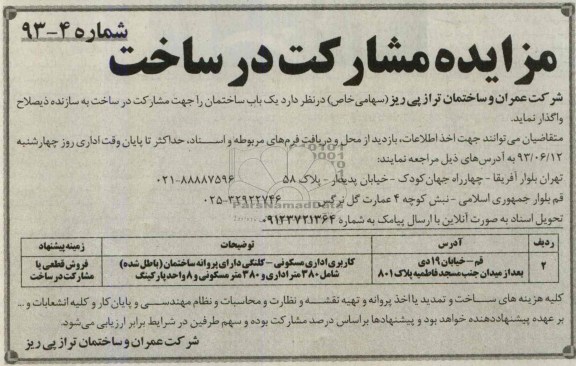 شماره ۴-۹۳
مزایده مشارکت در ساخت
شرکت عمران و ساختمان تراز پی ریز (سهامی خاص) درنظر دارد یک باب ساختمان را جهت مشارکت در ساخت به سازنده ذیصلاح
واگذار نماید.
متقاضیان می‌توانند جهت اخذ اطلاعات، بازدید از محل و دریافت فرم‌های مربوطه و اسناد، حداکثر تا پایان وقت اداری روز چهارشنبه
۹۳/۰۶/۱۲ به آدرس‌های ذیل مراجعه نمایند:
تهران بلوار آفریقا - چهارراه جهان کودک - خیابان پدیدار - پلاک ۵۸ ۸۸۸۸۷۵۹۶-۰۲۱
قم بلوار جمهوری اسلامی - نبش کوچه ۴ عمارت گل نرگس ۳۲۹۲۲۷۴۶-۰۲۵
تحویل اسناد به صورت آنلاین با ارسال پیامک به شماره ۰۹۱۲۳۷۲۱۳۶۴
ردیف آدرس توضیحات زمینه پیشنهاد
۲ قم - خیابان ۱۹ دی بعد از میدان جنب مسجد فاطمیه پلاک ۸۰۱ کاربری اداری مسکونی - کلنگی دارای پروانه ساختمان (باطل شده) شامل ۳۸۰ متر اداری و ۳۸۰ متر مسکونی و ۸ واحد پارکینگ فروش قطعی یا مشارکت در ساخت
کلیه هزینه های ساخت و تمدید یا اخذ پروانه و تهیه نقشه و نظارت و محاسبات و نظام مهندسی و پایان کار و کلیه انشعابات و ...
بر عهده پیشنهاددهنده خواهد بود و پیشنهادها براساس درصد مشارکت بوده و سهم طرفین در شرایط برابر ارزیابی می‌شود.
شرکت عمران و ساختمان تراز پی ریز